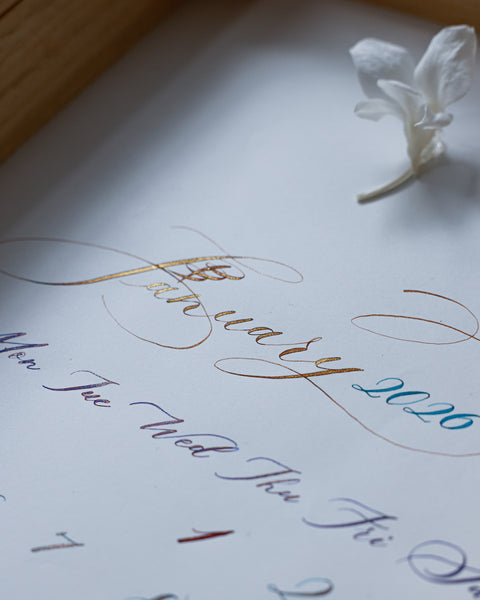 January 2026
Mon Tue Wed Thu Fri Sa
1 2
7